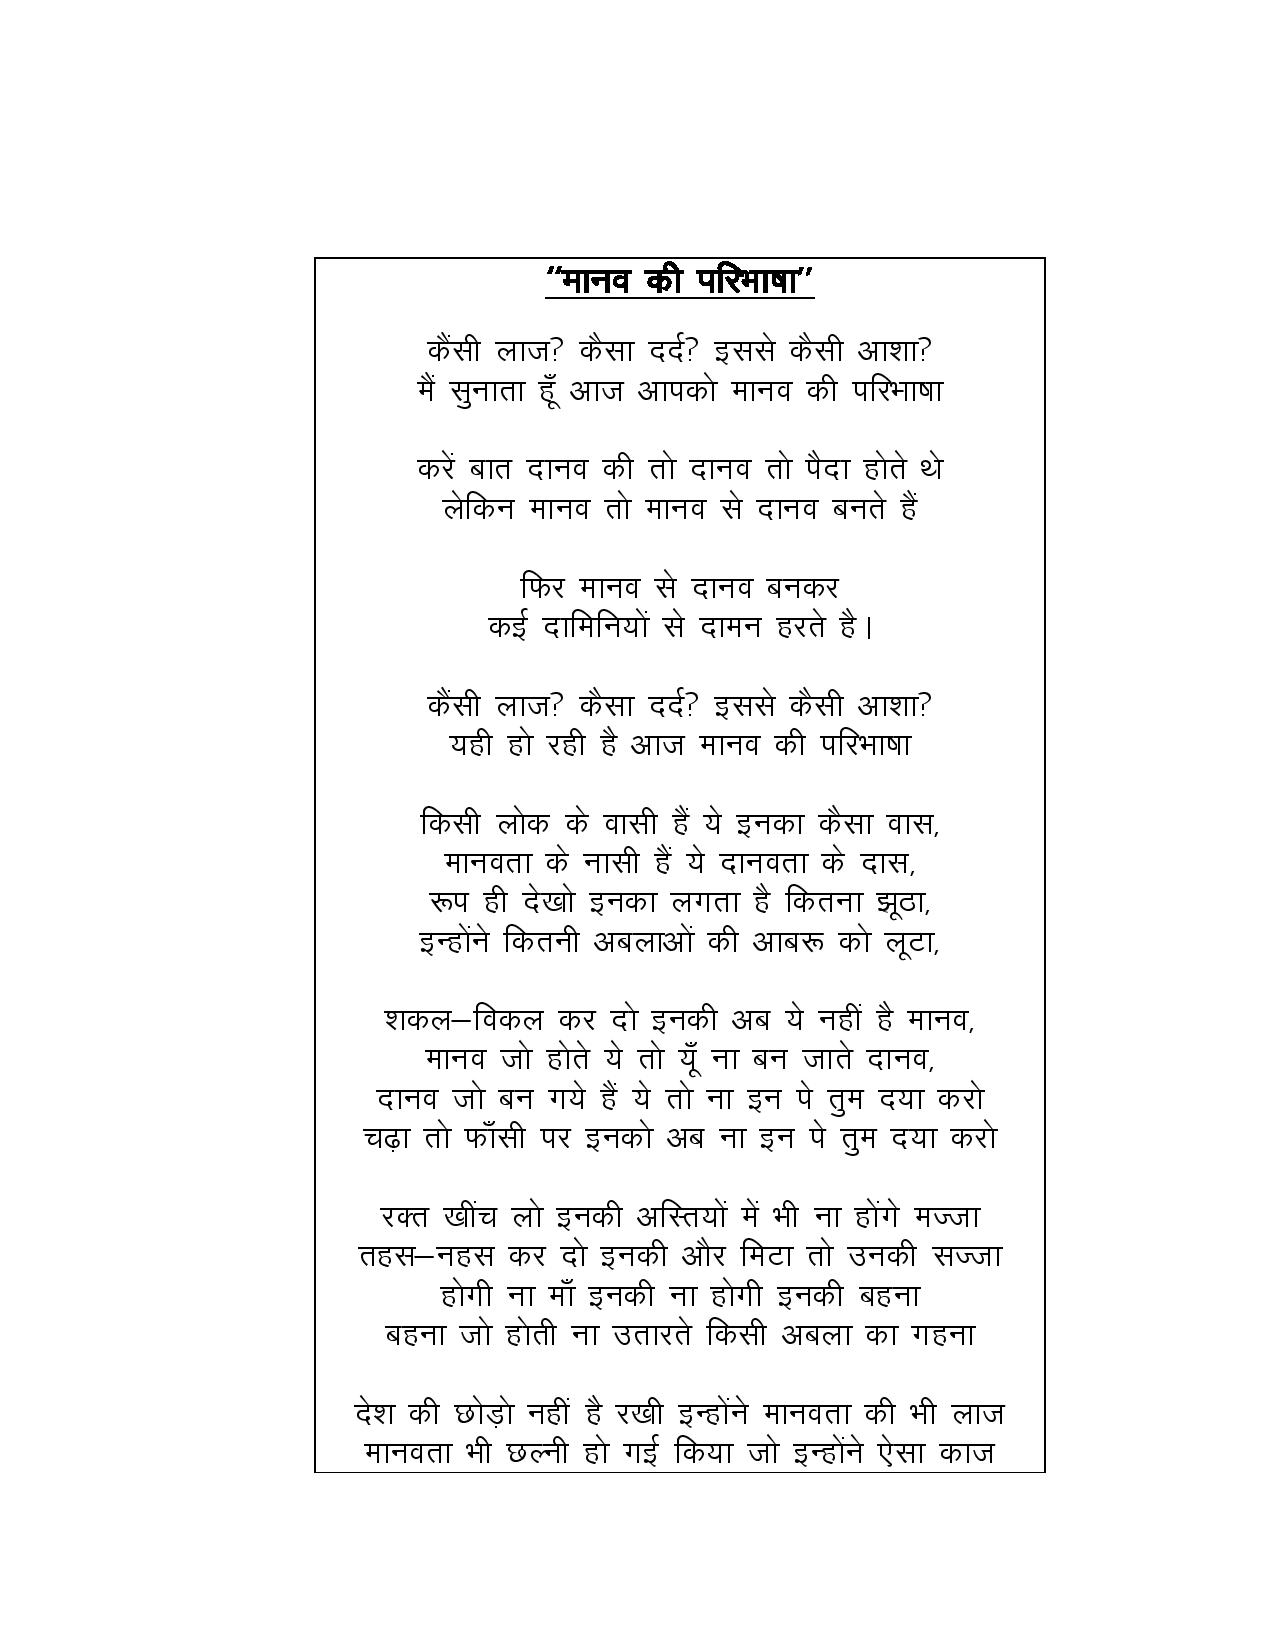 “मानव की परिभाषा”
कैंसी लाज? कैसा दर्द? इससे कैसी आशा?
मैं सुनाता हूँ आज आपको मानव की परिभाषा
करें बात दानव की तो दानव तो पैदा होते थे
लेकिन मानव तो मानव से दानव बनते हैं
फिर मानव से दानव बनकर
कई दामिनियों से दामन हरते है।
कैंसी लाज? कैसा दर्द? इससे कैसी आशा?
यही हो रही है आज मानव की परिभाषा
किसी लोक के वासी हैं ये इनका कैसा वास,
मानवता के नासी हैं ये दानवता के दास,
रूप ही देखो इनका लगता है कितना झूठा,
इन्होंने कितनी अबलाओं की आबरू को लूटा,
शकल–विकल कर दो इनकी अब ये नहीं है मानव,
मानव जो होते ये तो यूँ ना बन जाते दानव,
दानव जो बन गये हैं ये तो ना इन पे तुम दया करो
चढ़ा तो फाँसी पर इनको अब ना इन पे तुम दया करो
रक्त खींच लो इनकी अस्तियों में भी ना होंगे मज्जा
तहस–नहस कर दो इनकी और मिटा तो उनकी सज्जा
होगी ना माँ इनकी ना होगी इनकी बहना
बहना जो होती ना उतारते किसी अबला का गहना
देश की छोड़ो नहीं है रखी इन्होंने मानवता की भी लाज
मानवता भी छल्नी हो गई किया जो इन्होंने ऐसा काज